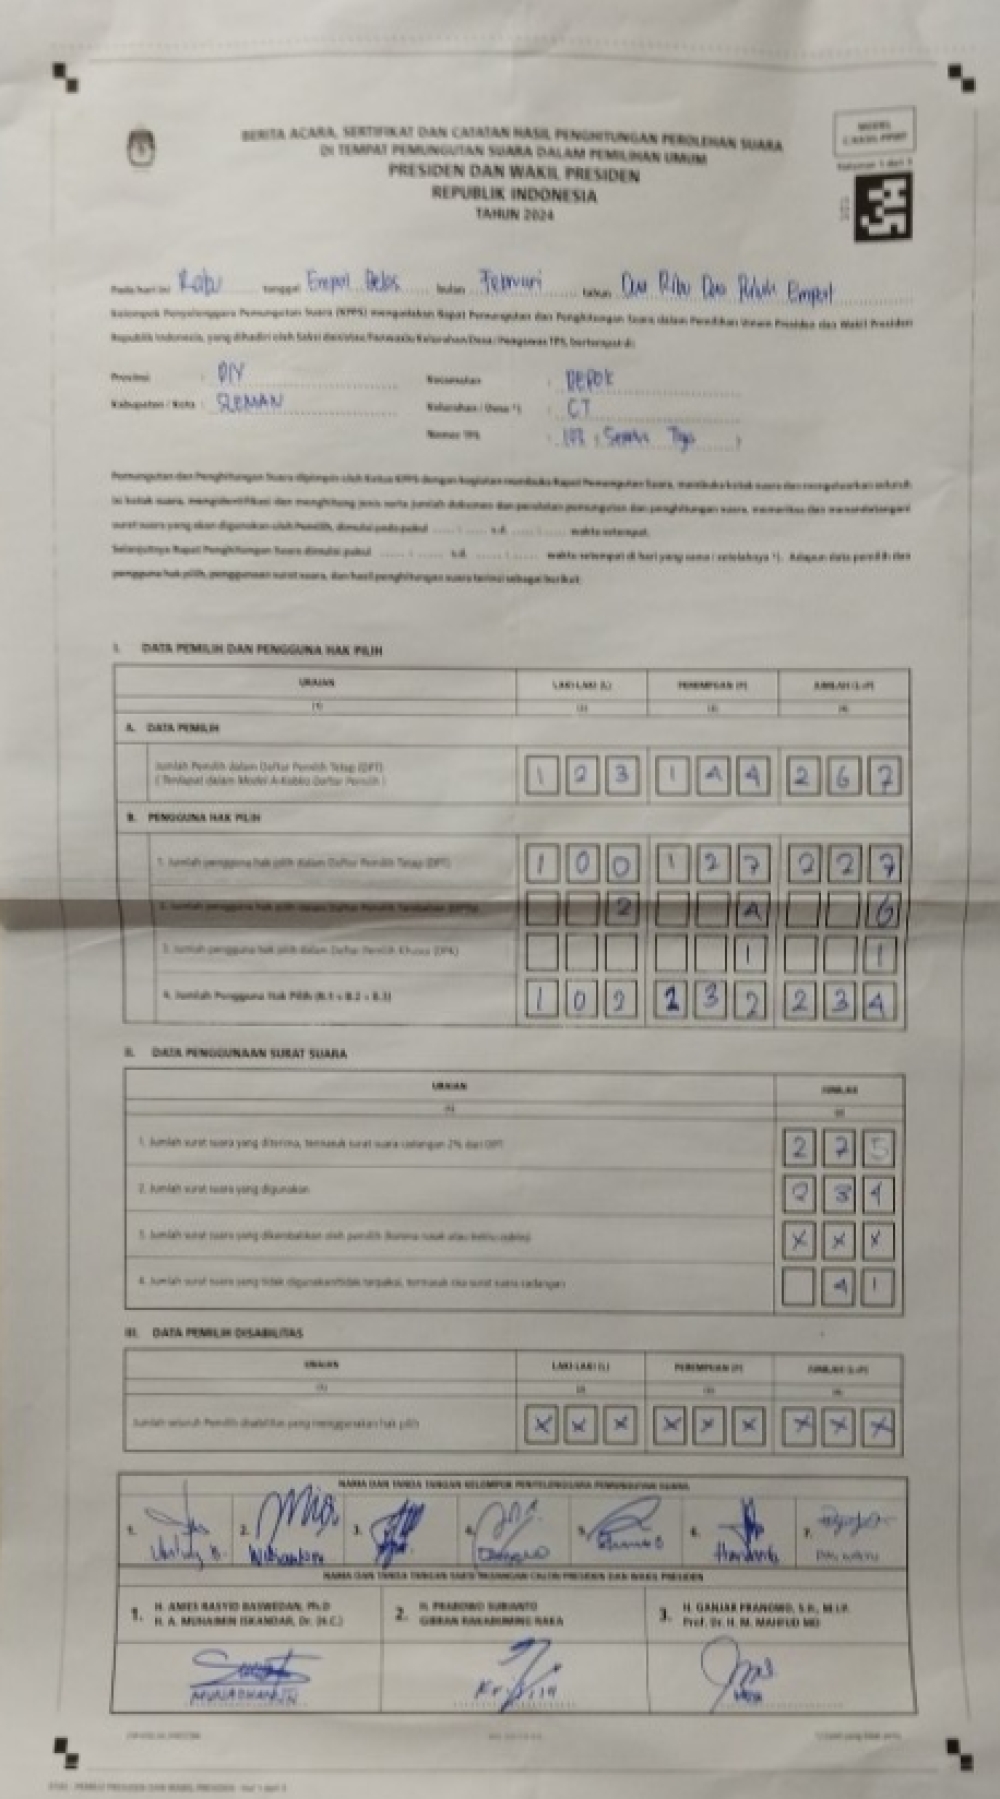 BERITA ACARA, SERTIFIKAT DAN CATATAN HASIL PENGHITUNGAN PEROLEHAN SUARA
DI TEMPAT PEMUNGUTAN SUARA DALAM PEMILIHAN UMUM
PRESIDEN DAN WAKIL PRESIDEN
REPUBLIK INDONESIA
TAHUN 2024
MODEL
Halaman 1 dari 3
Pada hari ini Rabu tanggal Empat Belas bulan Februari tahun Dua Ribu Dua Puluh Empat
Kelompok Penyelenggara Pemungutan Suara (KPPS) mengadakan Rapat Pemungutan dan Penghitungan Suara dalam Pemilihan Umum Presiden dan Wakil Presiden
Republik Indonesia, yang dihadiri oleh Saksi Kelurahan/Desa/Pengawas TPS, bertempat di:
Provinsi : DIY Kecamatan : DEPOK
Kabupaten / Kota : SLEMAN Kelurahan / Desa *) : CT
Nomor TPS :
Pemungutan dan Penghitungan Suara dipimpin oleh Ketua KPPS dengan kegiatan membuka Rapat Pemungutan Suara, membuka kotak suara dan mengeluarkan seluruh
isi kotak suara, mengidentifikasi dan menghitung jenis serta jumlah dokumen dan peralatan pemungutan dan penghitungan suara, memeriksa dan menandatangani
surat suara yang akan digunakan oleh Pemilih, dimulai pada pukul ...... : ...... s.d. ...... : ...... waktu setempat.
Selanjutnya Rapat Penghitungan Suara dimulai pukul ...... : ...... s.d. ...... : ...... waktu setempat di hari yang sama / setelahnya *). Adapun data pemilih dan
pengguna hak pilih, penggunaan surat suara, dan hasil penghitungan suara terinci sebagai berikut:
I. DATA PEMILIH DAN PENGGUNA HAK PILIH
URAIAN LAKI-LAKI (L) PEREMPUAN (P) JUMLAH (L+P)
(1) (2) (3) (4)
A. DATA PEMILIH
Jumlah Pemilih dalam Daftar Pemilih Tetap (DPT) 1 2 3 1 4 4 2 6 7
(Terdapat dalam Model A-Kabko Daftar Pemilih)
B. PENGGUNA HAK PILIH
1. Jumlah pengguna hak pilih dalam Daftar Pemilih Tetap (DPT) 1 0 0 1 2 7 2 2 7
2. Jumlah pengguna hak pilih dalam Daftar Pemilih Tambahan (DPTb) 2 4 6
3. Jumlah pengguna hak pilih dalam Daftar Pemilih Khusus (DPK) 1 1
4. Jumlah Pengguna Hak Pilih (B.1 + B.2 + B.3) 1 0 2 3 2 2 3 4
II. DATA PENGGUNAAN SURAT SUARA
URAIAN JUMLAH
(1) (2)
1. Jumlah surat suara yang diterima, termasuk surat suara cadangan 2% dari DPT 2 7 5
2. Jumlah surat suara yang digunakan 2 3 4
3. Jumlah surat suara yang dikembalikan oleh pemilih karena rusak atau keliru coblos X X X
4. Jumlah surat suara yang tidak digunakan/tidak terpakai, termasuk sisa surat suara cadangan 4 1
III. DATA PEMILIH DISABILITAS
URAIAN LAKI-LAKI (L) PEREMPUAN (P) JUMLAH (L+P)
(1) (2) (3) (4)
Jumlah seluruh Pemilih disabilitas yang menggunakan hak pilih X X X X X X X X X
NAMA DAN TANDA TANGAN KELOMPOK PENYELENGGARA PEMUNGUTAN SUARA
1. 2. 3. 4. 5. 6. 7.
NAMA DAN TANDA TANGAN SAKSI PASANGAN CALON PRESIDEN DAN WAKIL PRESIDEN
1. H. ANIES RASYID BASWEDAN, Ph.D
H. A. MUHAIMIN ISKANDAR, Dr. (H.C.)
2. H. PRABOWO SUBIANTO
GIBRAN RAKABUMING RAKA
3. H. GANJAR PRANOWO, S.H., M.I.P.
Prof. Dr. H. M. MAHFUD MD